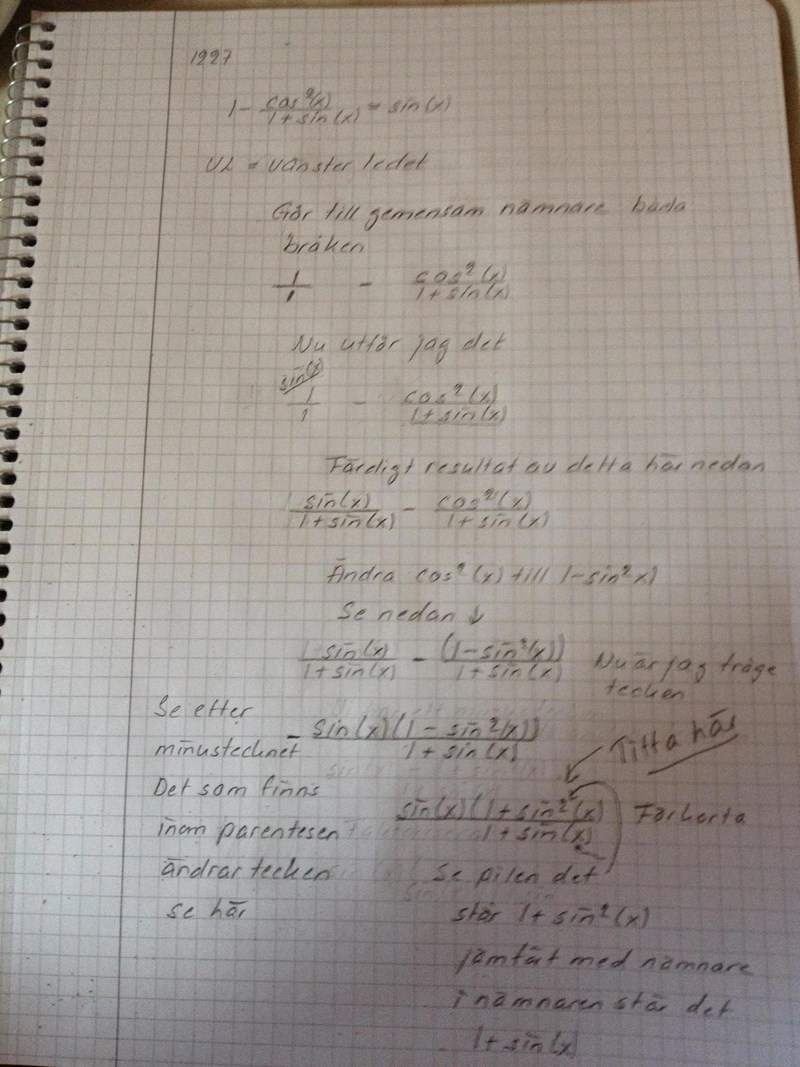 1227
1 - cos²(x) / 1 + sin(x) = sin(x)
VL = Vänster ledet
Gör till gemensam nämnare båda
bråken
1/1 - cos²(x) / 1 + sin(x)
Nu utför jag det
sin(x)
1/1 - cos²(x) / 1 + sin(x)
Färdigt resultat av detta här nedan
sin(x) / 1 + sin(x) - cos²(x) / 1 + sin(x)
Ändra cos²(x) till 1-sin²x)
Se nedan ↓
sin(x) / 1 + sin(x) - (1-sin²(x)) / 1 + sin(x) Nu är jag
tecken
Se efter
minustechnet
- sin(x)(1 - sin²(x)) / 1 + sin(x)
Titta här
Det som finns
inom parentesen
ändrar tecken
se här
sin(x)(1 + sin²(x) / 1 + sin(x) Förkorta
Se pilen det
står 1 + sin²(x)
jämfört med nämnare
i nämnaren står det
1 + sin(x)